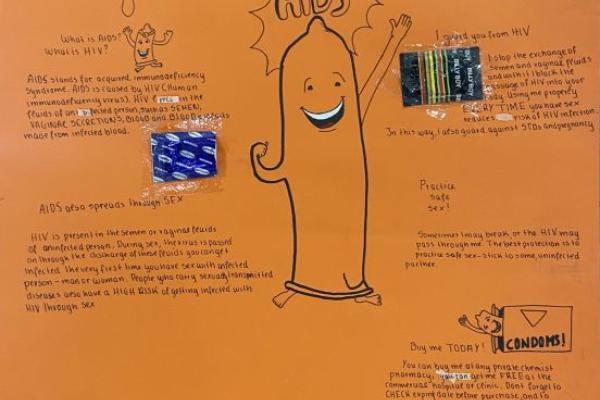 AIDS
What is AIDS?
What is HIV?
AIDS stands for acquired immunodeficiency
Syndrome. AIDS is caused by HIV (human
immunodeficiency virus). HIV in the
fluids of an infected person, such as SEMEN,
VAGINAL SECRETIONS, BLOOD and BLOOD
made from infected blood.
AIDS also spreads through SEX
HIV is present in the semen or vaginal fluids
of an infected person. During sex, the virus is passed
on through the discharge of these fluids you can get
infected the very first time you have sex with infected
person - man or woman. People who carry sexually transmitted
diseases also have a HIGH RISK of getting infected with
HIV through sex
I guard you from HIV
I stop the exchange of
semen and vaginal fluids
and with it I block the
passage of HIV into your
body. Using me properly
EVERY TIME you have sex
reduces risk of HIV infection.
In this way, I also guard against STDs and pregnancy
BILLY BOY
Practice
safe
sex!
Sometimes I may break, or the HIV may
pass through me. The best protection is to
practice safe sex - stick to same, uninfected
partner.
Buy me TODAY!
CONDOMS!
You can buy me at any private chemist
pharmacy, you can get me FREE at the
hospital or clinic. Dont forget to
CHECK expiry date before purchase, and to